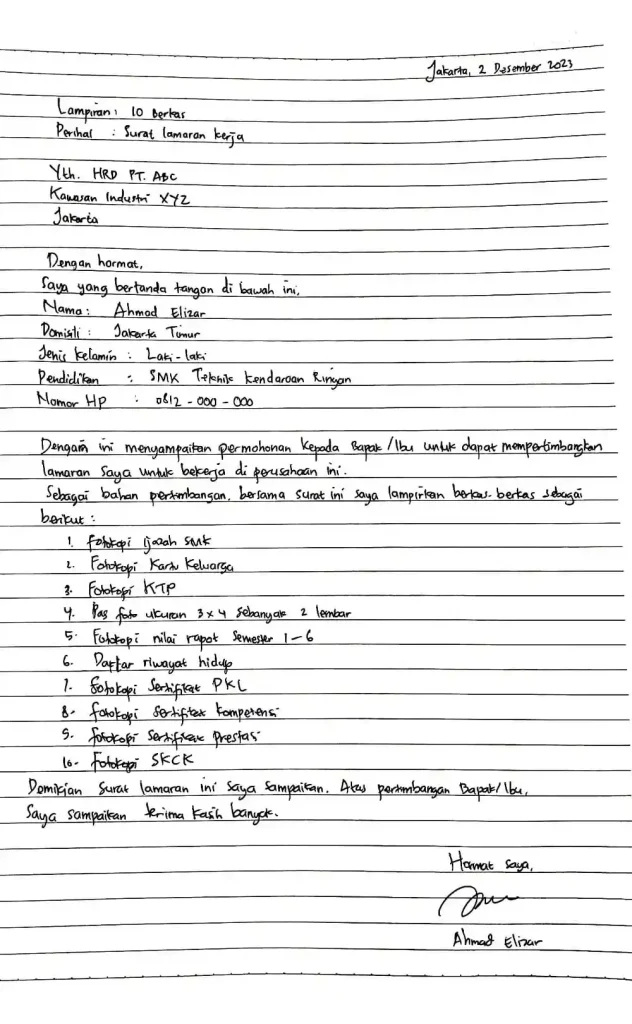 Jakarta, 2 Desember 2023
Lampiran : 10 Berkas
Perihal : Surat lamaran kerja
Yth. HRD PT. ABC
Kawasan Industri XYZ
Jakarta
Dengan hormat,
Saya yang bertanda tangan di bawah ini,
Nama : Ahmad Elizar
Domisili : Jakarta Timur
Jenis Kelamin : Laki-laki
Pendidikan : SMK Teknik Kendaraan Ringan
Nomor HP : 0812-000-000
Dengan ini menyampaikan permohonan kepada Bapak/Ibu untuk dapat mempertimbangkan
lamaran saya untuk bekerja di perusahaan ini.
Sebagai bahan pertimbangan, bersama surat ini saya lampirkan berkas-berkas sebagai
berikut :
1. Fotokopi Ijazah SMK
2. Fotokopi Kartu Keluarga
3. Fotokopi KTP
4. Pas foto ukuran 3x4 sebanyak 2 lembar
5. Fotokopi nilai rapot Semester 1-6
6. Daftar riwayat hidup
7. Fotokopi Sertifikat PKL
8. Fotokopi Sertifikat Kompetensi
9. Fotokopi Sertifikat Prestasi
10. Fotokopi SKCK
Demikian Surat lamaran ini saya sampaikan. Atas pertimbangan Bapak/Ibu,
Saya sampaikan terima kasih banyak.
Hormat saya,
Ahmad Elizar